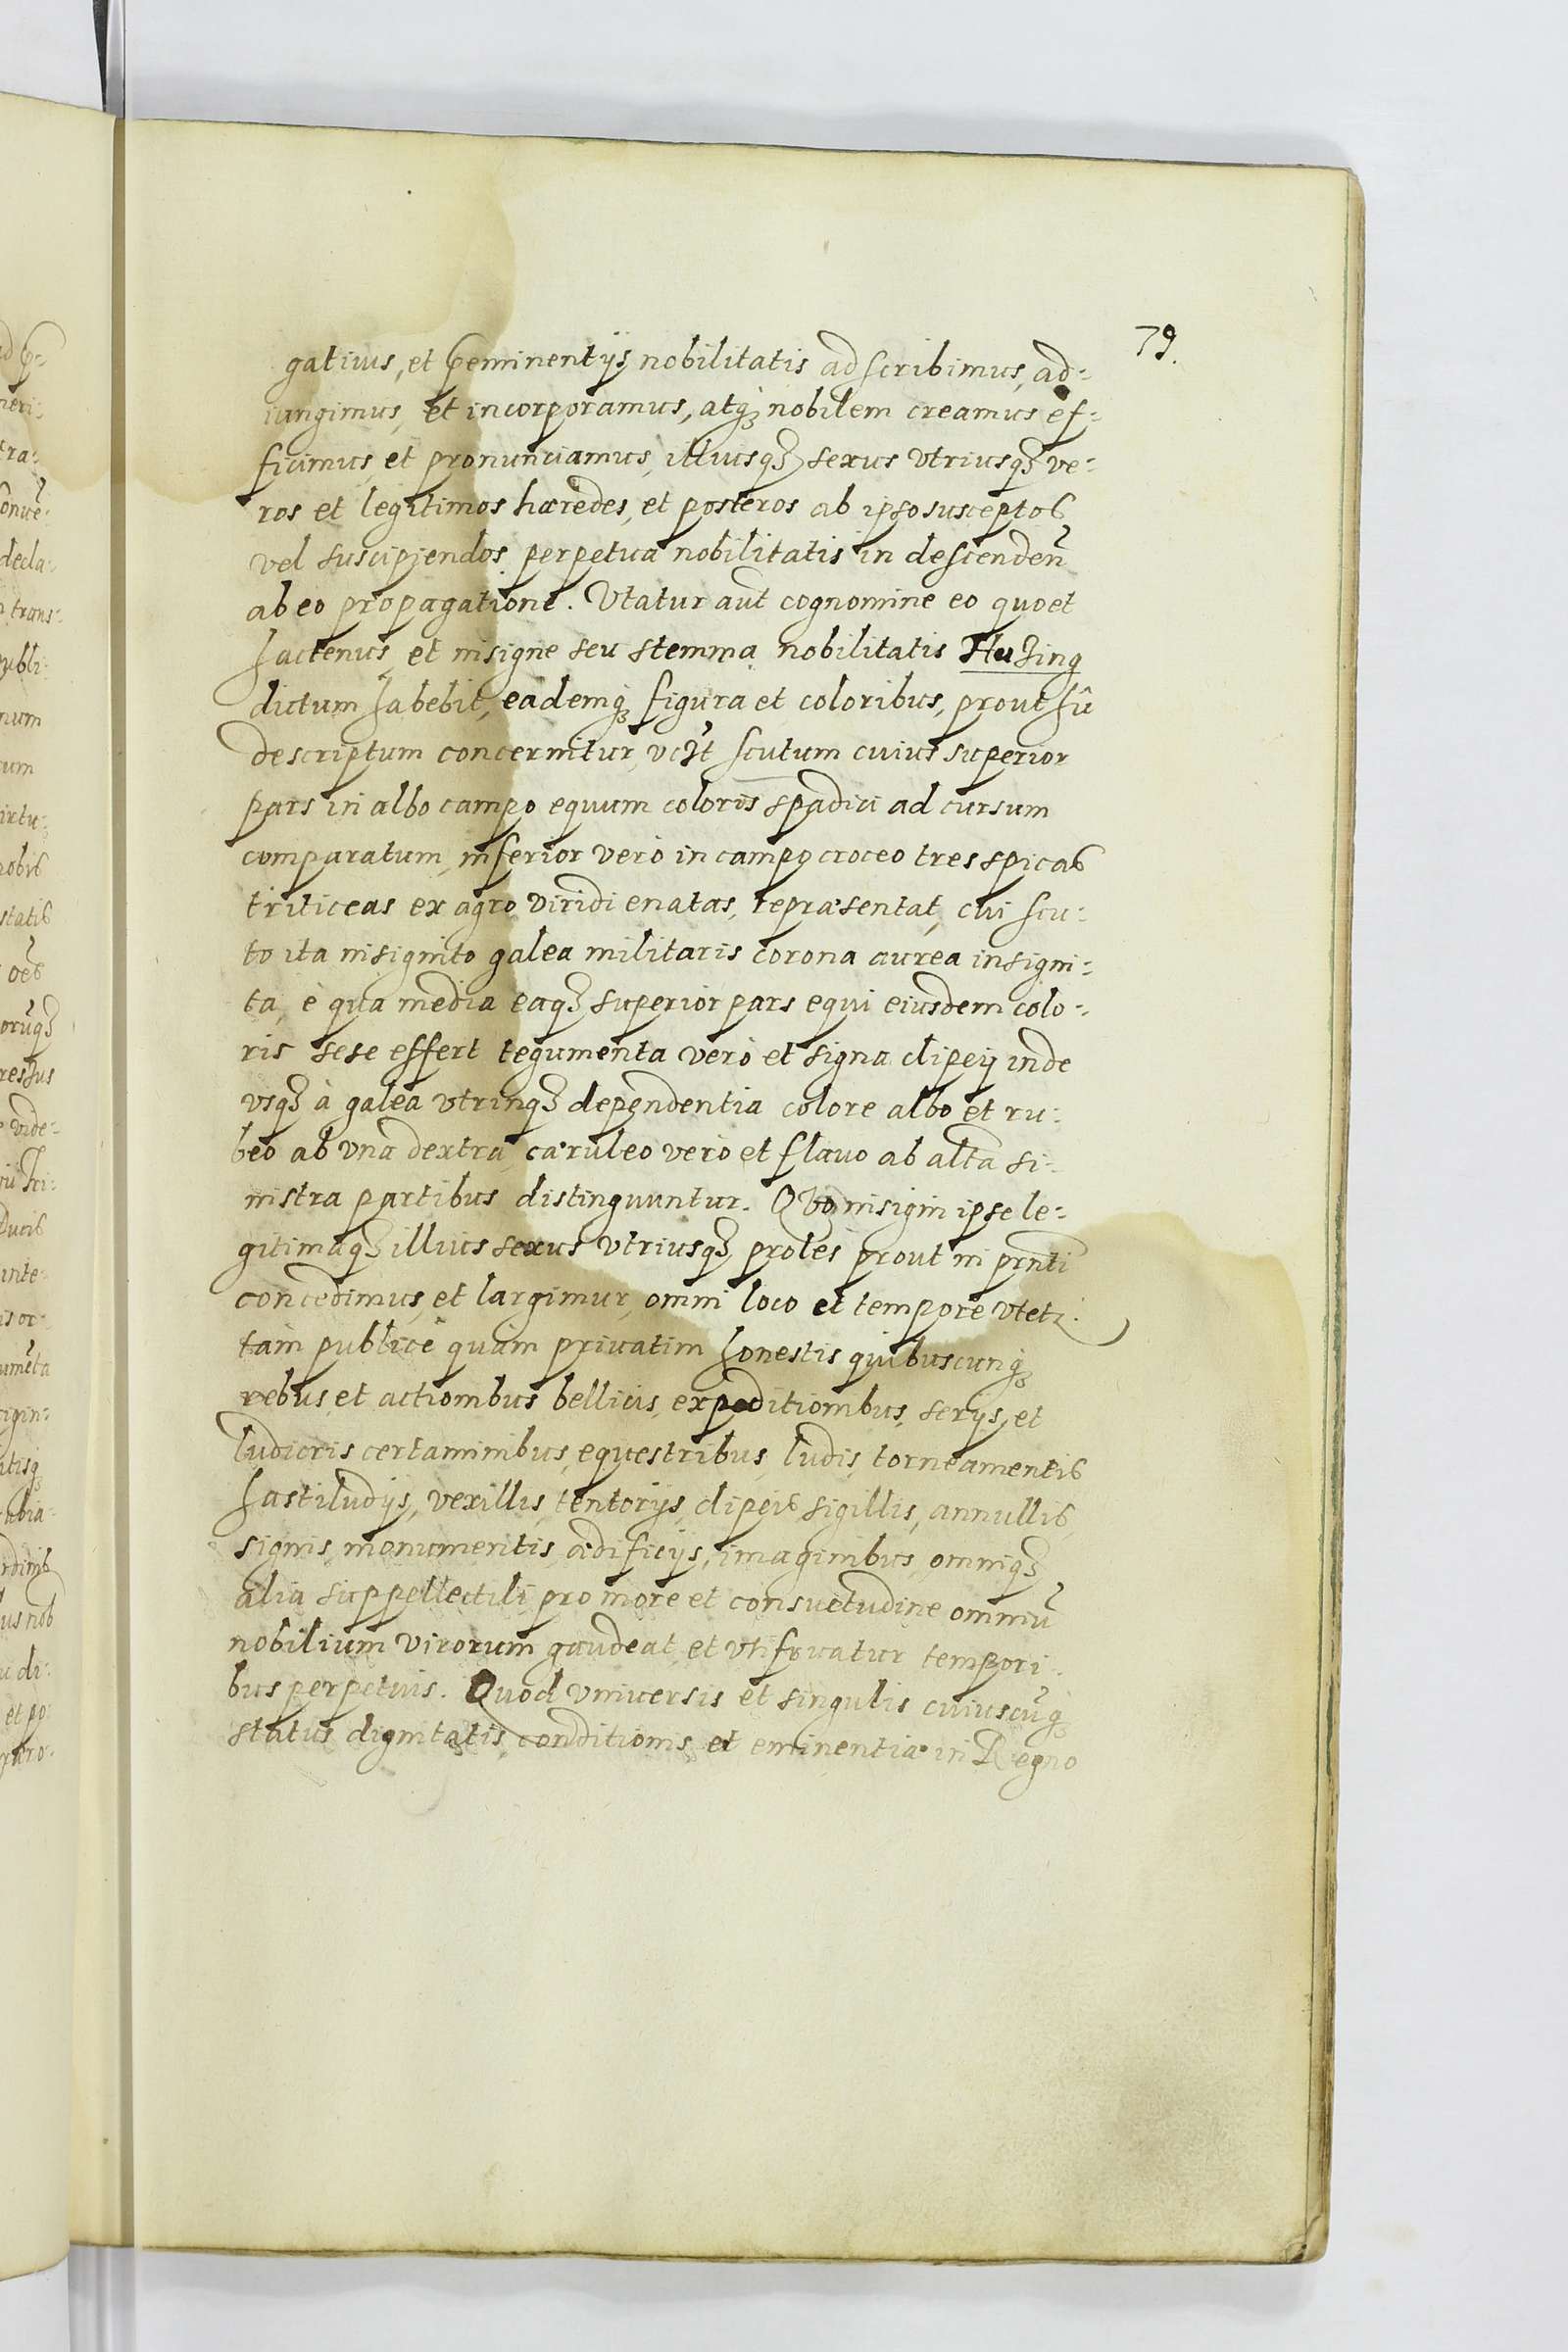 79.
gatiuis, et p̃eminentijs nobilitatis adscribimus, ad-
iungimus, et incorporamus, atq̨ nobilem creamus ef-
ficimus, et pronunciamus, illiusq̨ sexus vtriusq̨ ve-
ros et legitimos hæredes, et posteros ab ipso susceptos
vel suscipiendos perpetua nobilitatis in descendeñ
ab eo propagatione. Vtatur aut̃ cognomine eo quo et
hactenus, et insigne seu stemma nobilitatis Huzing
dictum habebit, eademq̨ figura et coloribus, prout hîc
descriptum concernitur, vclt scutum cuius superior
pars in albo campo equum coloris spadici ad cursum
comparatum, inferior verò in campo croceo tres spicas
triticeas ex agro viridi enatas, repræsentat, cui scu-
to ita insignito galea militaris corona aurea insigni-
ta, è qua media eaq̨ superior pars equi eiusdem colo-
ris sese effert tegumenta verò et signa clipey inde
vsq̨ à galea vtrinq̨ dependentia colore albo et ru-
beo ab vna dextra, cæruleo verò et flauo ab alta si-
nistra partibus distinguuntur. Quo insigni ipse le-
gitimaq̨ illius sexus vtriusq̨ proles prout in prñti
concedimus, et largimur, omni loco et tempore vtetr
tam publicè quàm priuatim honestis quibuscunq̨
rebus, et actionibus bellicis, expeditionibus, serijs, et
ludicris certaminibus, equestribus, ludis, torneamentis
hastiludijs, vexillis, tentorijs, clipeis sigillis, annullis,
signis, monumentis ædificijs, imaginibus, omniq̨
alia suppellectili pro more et consuetudine omniũ
nobilium virorum gaudeat, et vti fruatur tempori-
bus perpetuis. Quod vniuersis et singulis cuiuscũq̨
status dignitatis, conditionis, et eminentiæ in Regno